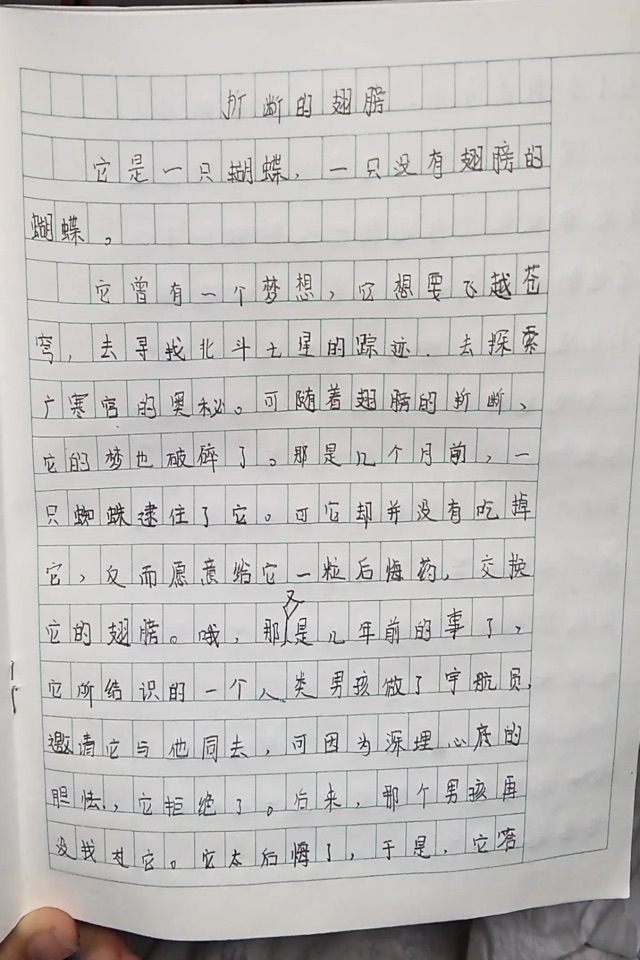 折断的翅膀
它是一只蝴蝶，一只没有翅膀的
蝴蝶。
它曾有一个梦想，它想要飞越苍
穹，去寻找北斗七星的踪迹，去探索
广寒宫的奥秘。可随着翅膀的折断，
它的梦也破碎了。那是几个月前，一
只蜘蛛逮住了它。可它却并没有吃掉
它，反而愿意给它一粒后悔药，交换
它的翅膀。哦，那又是几年前的事了，
它所结识的一个人类男孩做了宇航员，
邀请它与他同去，可因为深埋心底的
胆怯，它拒绝了。后来，那个男孩再
没找过它。它太后悔了，于是，它答